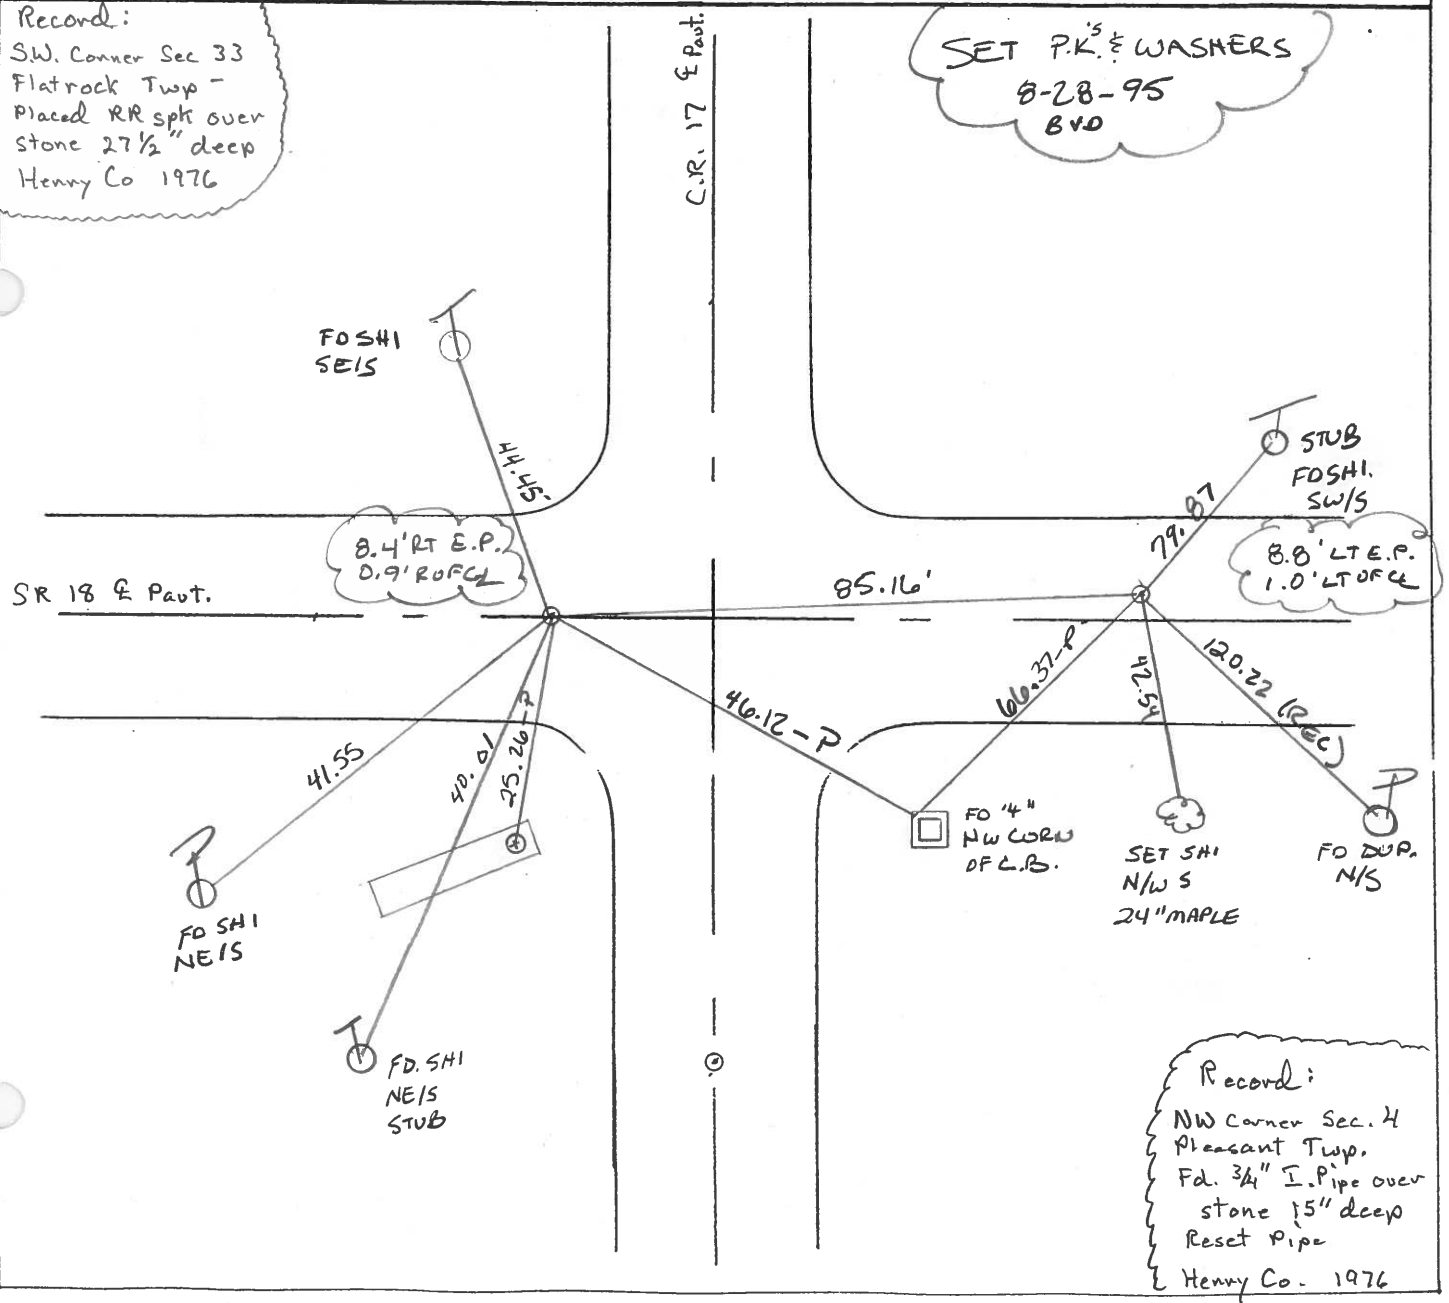 Record:
S.W. Corner Sec 33
Flatrock Twp -
Placed RR spk over
stone 27 1/2" deep
Henry Co 1976
C.R. 17 ℄ Pavt.
SET P.K.'S & WASHERS
8-28-95
BVD
FD SHI
SE/S
44.45'
STUB
FD SHI.
SW/S
79.87
8.4' RT E.P.
0.9' R OF CL
8.8' LT E.P.
1.0' LT OF CL
SR 18 ℄ Pavt.
85.16'
41.55
40.01
25.26-P
46.12-P
66.37-P
42.54
120.22 (REC)
FD SHI
NE/S
FD. SHI
NE/S
STUB
FD "4"
NW CORN
OF C.B.
SET SHI
N/W S
24" MAPLE
FD DUP.
N/S
Record:
NW Corner Sec. 4
Pleasant Twp.
Fd. 3/4" I.Pipe over
stone 15" deep
Reset Pipe
Henry Co. 1976